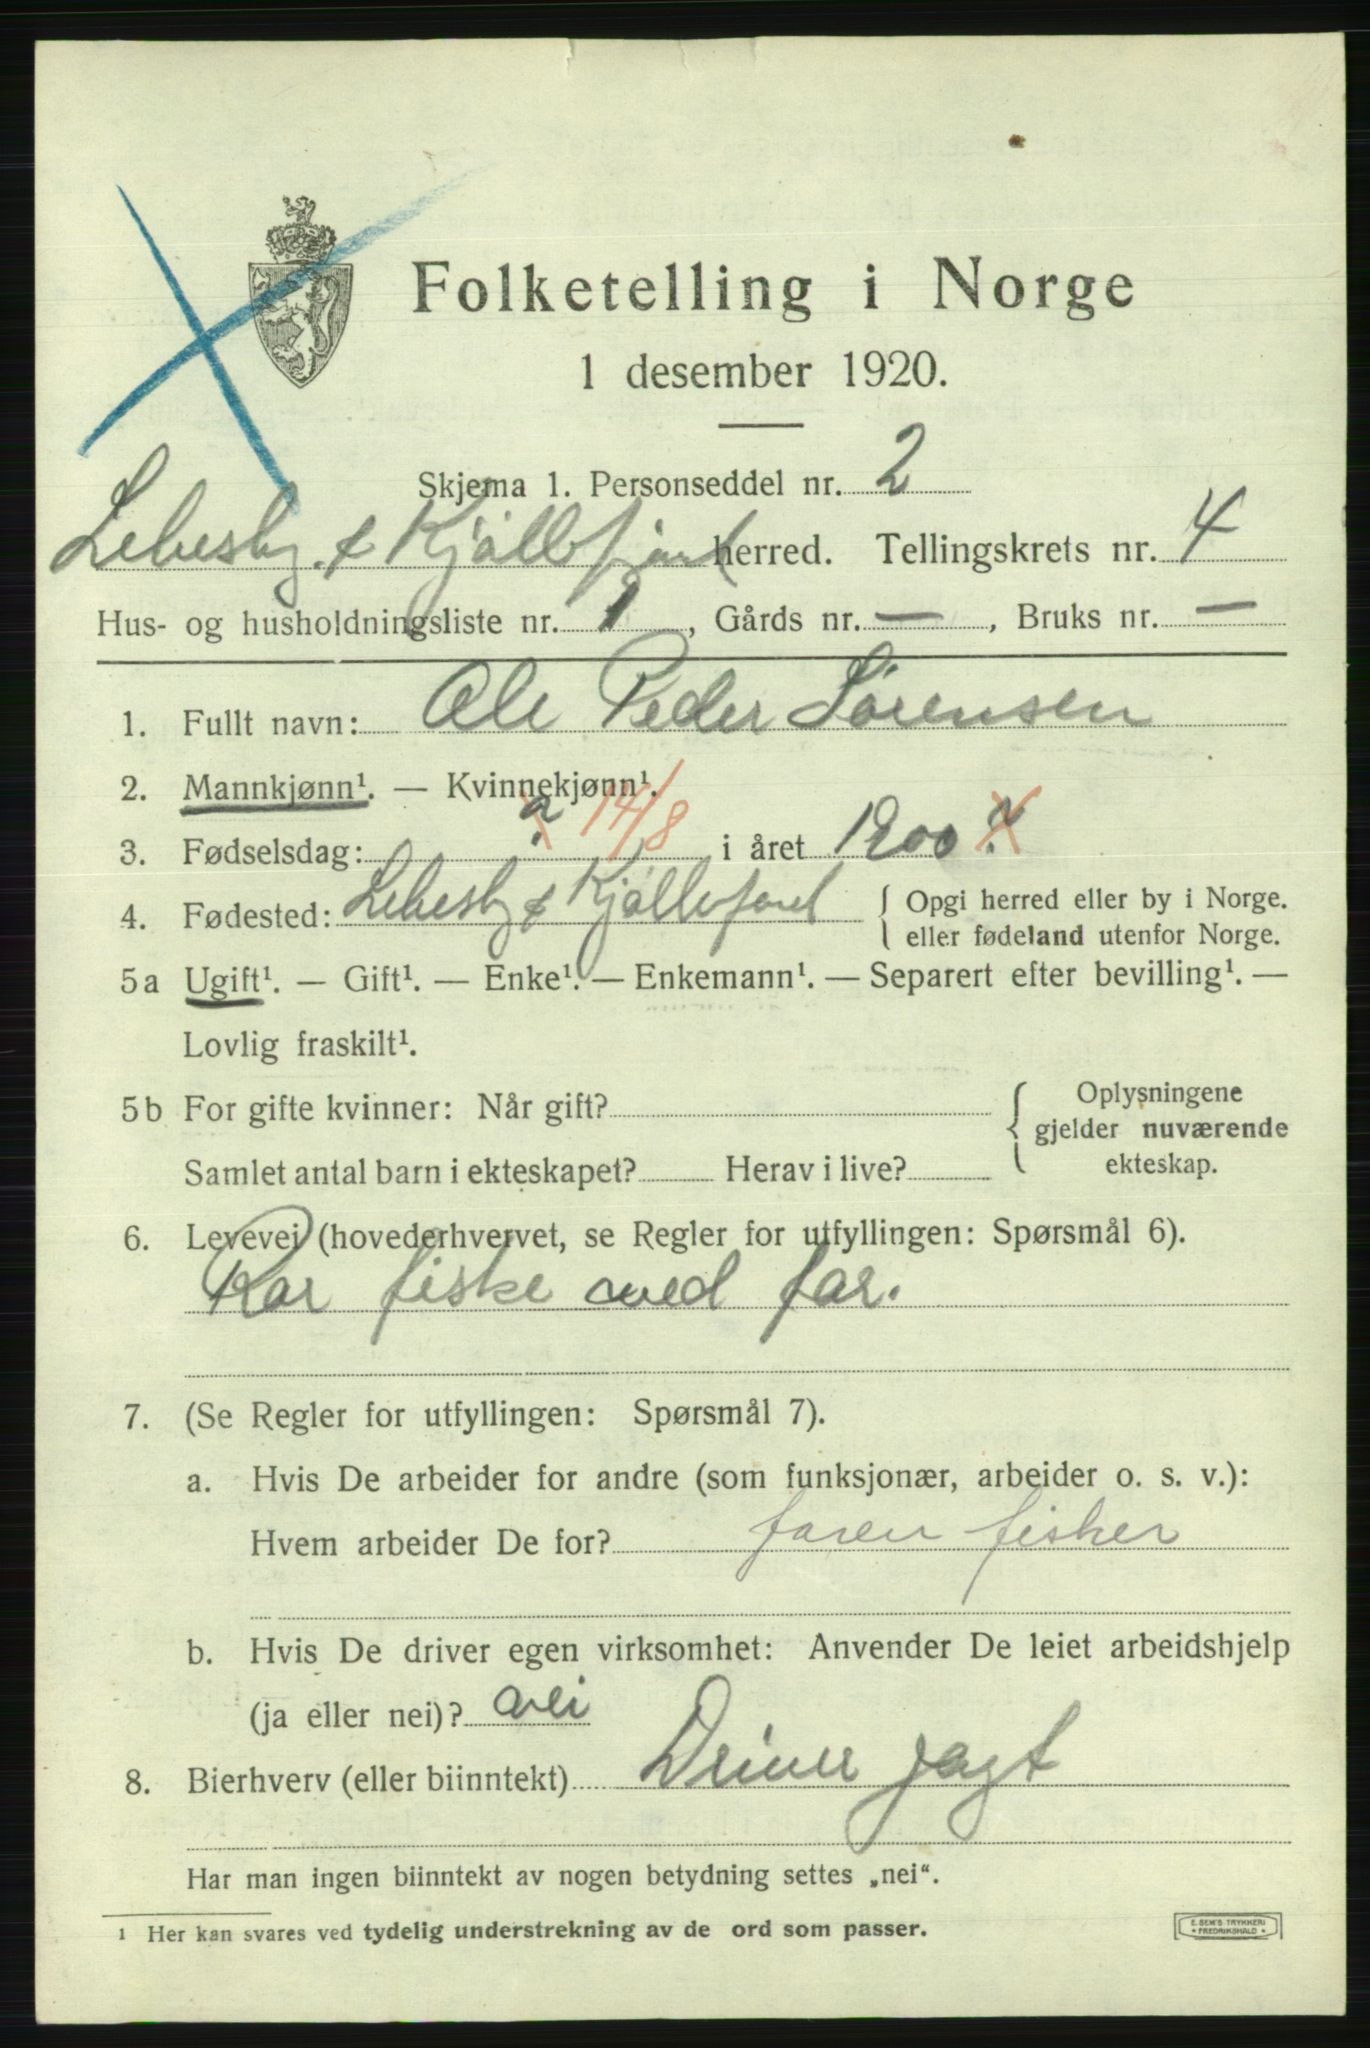 Folketelling i Norge
1 desember 1920.
Skjema 1. Personseddel nr. 2
Lebesby & Kjøllefjord herred. Tellingskrets nr. 4
Hus- og husholdningsliste nr. 1, Gårds nr. —, Bruks nr. —
1. Fullt navn: Ole Peder Sørensen
2. Mannkjønn¹. — Kvinnekjønn¹.
3. Fødselsdag: ? 14/8 i året 1900 ?
4. Fødested: Lebesby & Kjøllefjord { Opgi herred eller by i Norge.
eller fødeland utenfor Norge.
5a Ugift¹. — Gift¹. — Enke¹. — Enkemann¹. — Separert efter bevilling¹. —
Lovlig fraskilt¹.
5b For gifte kvinner: Når gift? { Oplysningene
gjelder nuværende
Samlet antal barn i ekteskapet? Herav i live? ekteskap.
6. Levevei (hovederhvervet, se Regler for utfyllingen: Spørsmål 6).
Ror fiske med far.
7. (Se Regler for utfyllingen: Spørsmål 7).
a. Hvis De arbeider for andre (som funksjonær, arbeider o. s. v.):
Hvem arbeider De for? faren fisker
b. Hvis De driver egen virksomhet: Anvender De leiet arbeidshjelp
(ja eller nei)? nei
8. Bierhverv (eller biinntekt) Driver jagt
Har man ingen biinntekt av nogen betydning settes „nei“.
1 Her kan svares ved tydelig understrekning av de ord som passer.
E. SEM'S TRYKKERI
FREDRIKSHALD